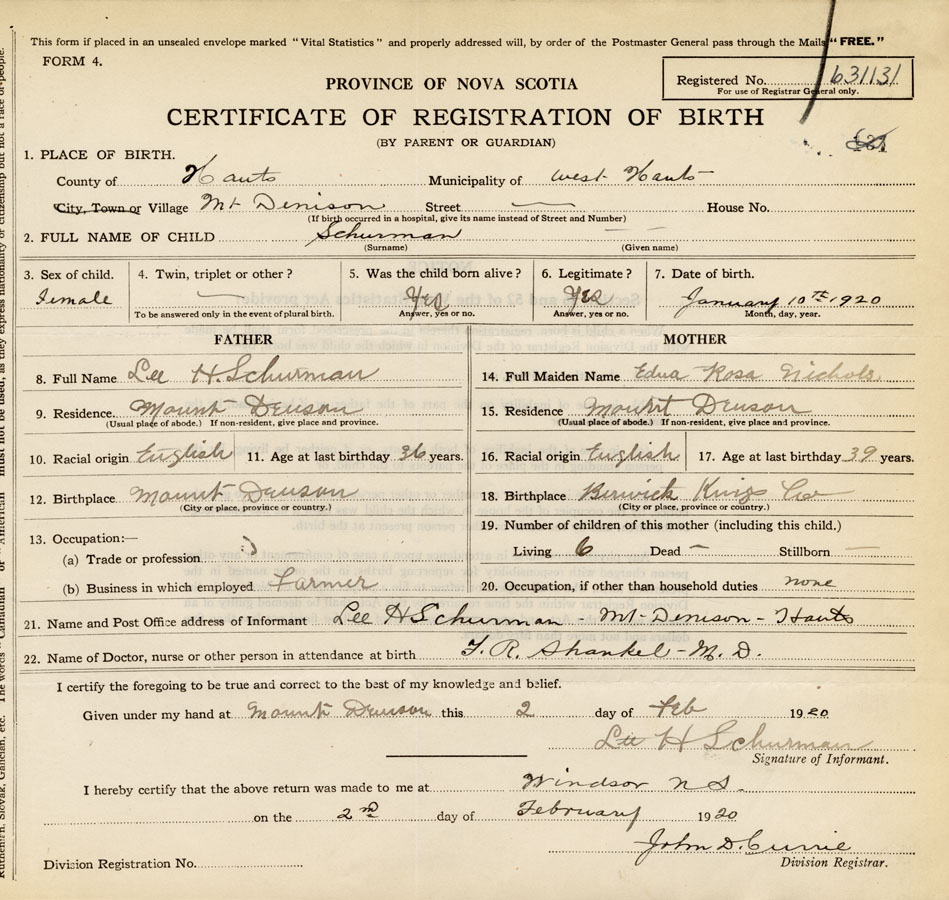 This form if placed in an unsealed envelope marked "Vital Statistics" and properly addressed will, by order of the Postmaster General pass through the Mails "FREE."
FORM 4.
Registered No. 631131
For use of Registrar General only.
PROVINCE OF NOVA SCOTIA
CERTIFICATE OF REGISTRATION OF BIRTH
(BY PARENT OR GUARDIAN)
1. PLACE OF BIRTH.
County of Hants Municipality of West Hants
City, Town or Village Mt Denison Street — House No.
(If birth occurred in a hospital, give its name instead of Street and Number)
2. FULL NAME OF CHILD Schurman —
(Surname) (Given name)
3. Sex of child. 4. Twin, triplet or other? 5. Was the child born alive? 6. Legitimate? 7. Date of birth.
Female — Yes Yes January 10th 1920
To be answered only in the event of plural birth. Answer, yes or no. Answer, yes or no. Month, day, year.
FATHER
8. Full Name Lee H. Schurman
9. Residence. Mount Denson
(Usual place of abode.) If non-resident, give place and province.
10. Racial origin English 11. Age at last birthday 36 years.
12. Birthplace Mount Denson
(City or place, province or country.)
13. Occupation:—
(a) Trade or profession
(b) Business in which employed Farmer
MOTHER
14. Full Maiden Name Edna Rosa Nichols
15. Residence Mount Denson
(Usual place of abode.) If non-resident, give place and province.
16. Racial origin English 17. Age at last birthday 39 years.
18. Birthplace Berwick Kings Co
(City or place, province or country.)
19. Number of children of this mother (including this child.)
Living 6 Dead — Stillborn —
20. Occupation, if other than household duties none
21. Name and Post Office address of Informant Lee H Schurman - Mt- Denison - Hants
22. Name of Doctor, nurse or other person in attendance at birth F. R. Shankel - M. D.
I certify the foregoing to be true and correct to the best of my knowledge and belief.
Given under my hand at Mount Denson this 2 day of Feb 1920
Lee H Schurman
Signature of Informant.
I hereby certify that the above return was made to me at Windsor N S.
on the 2nd day of February 1920
John D. Currie
Division Registration No. Division Registrar.